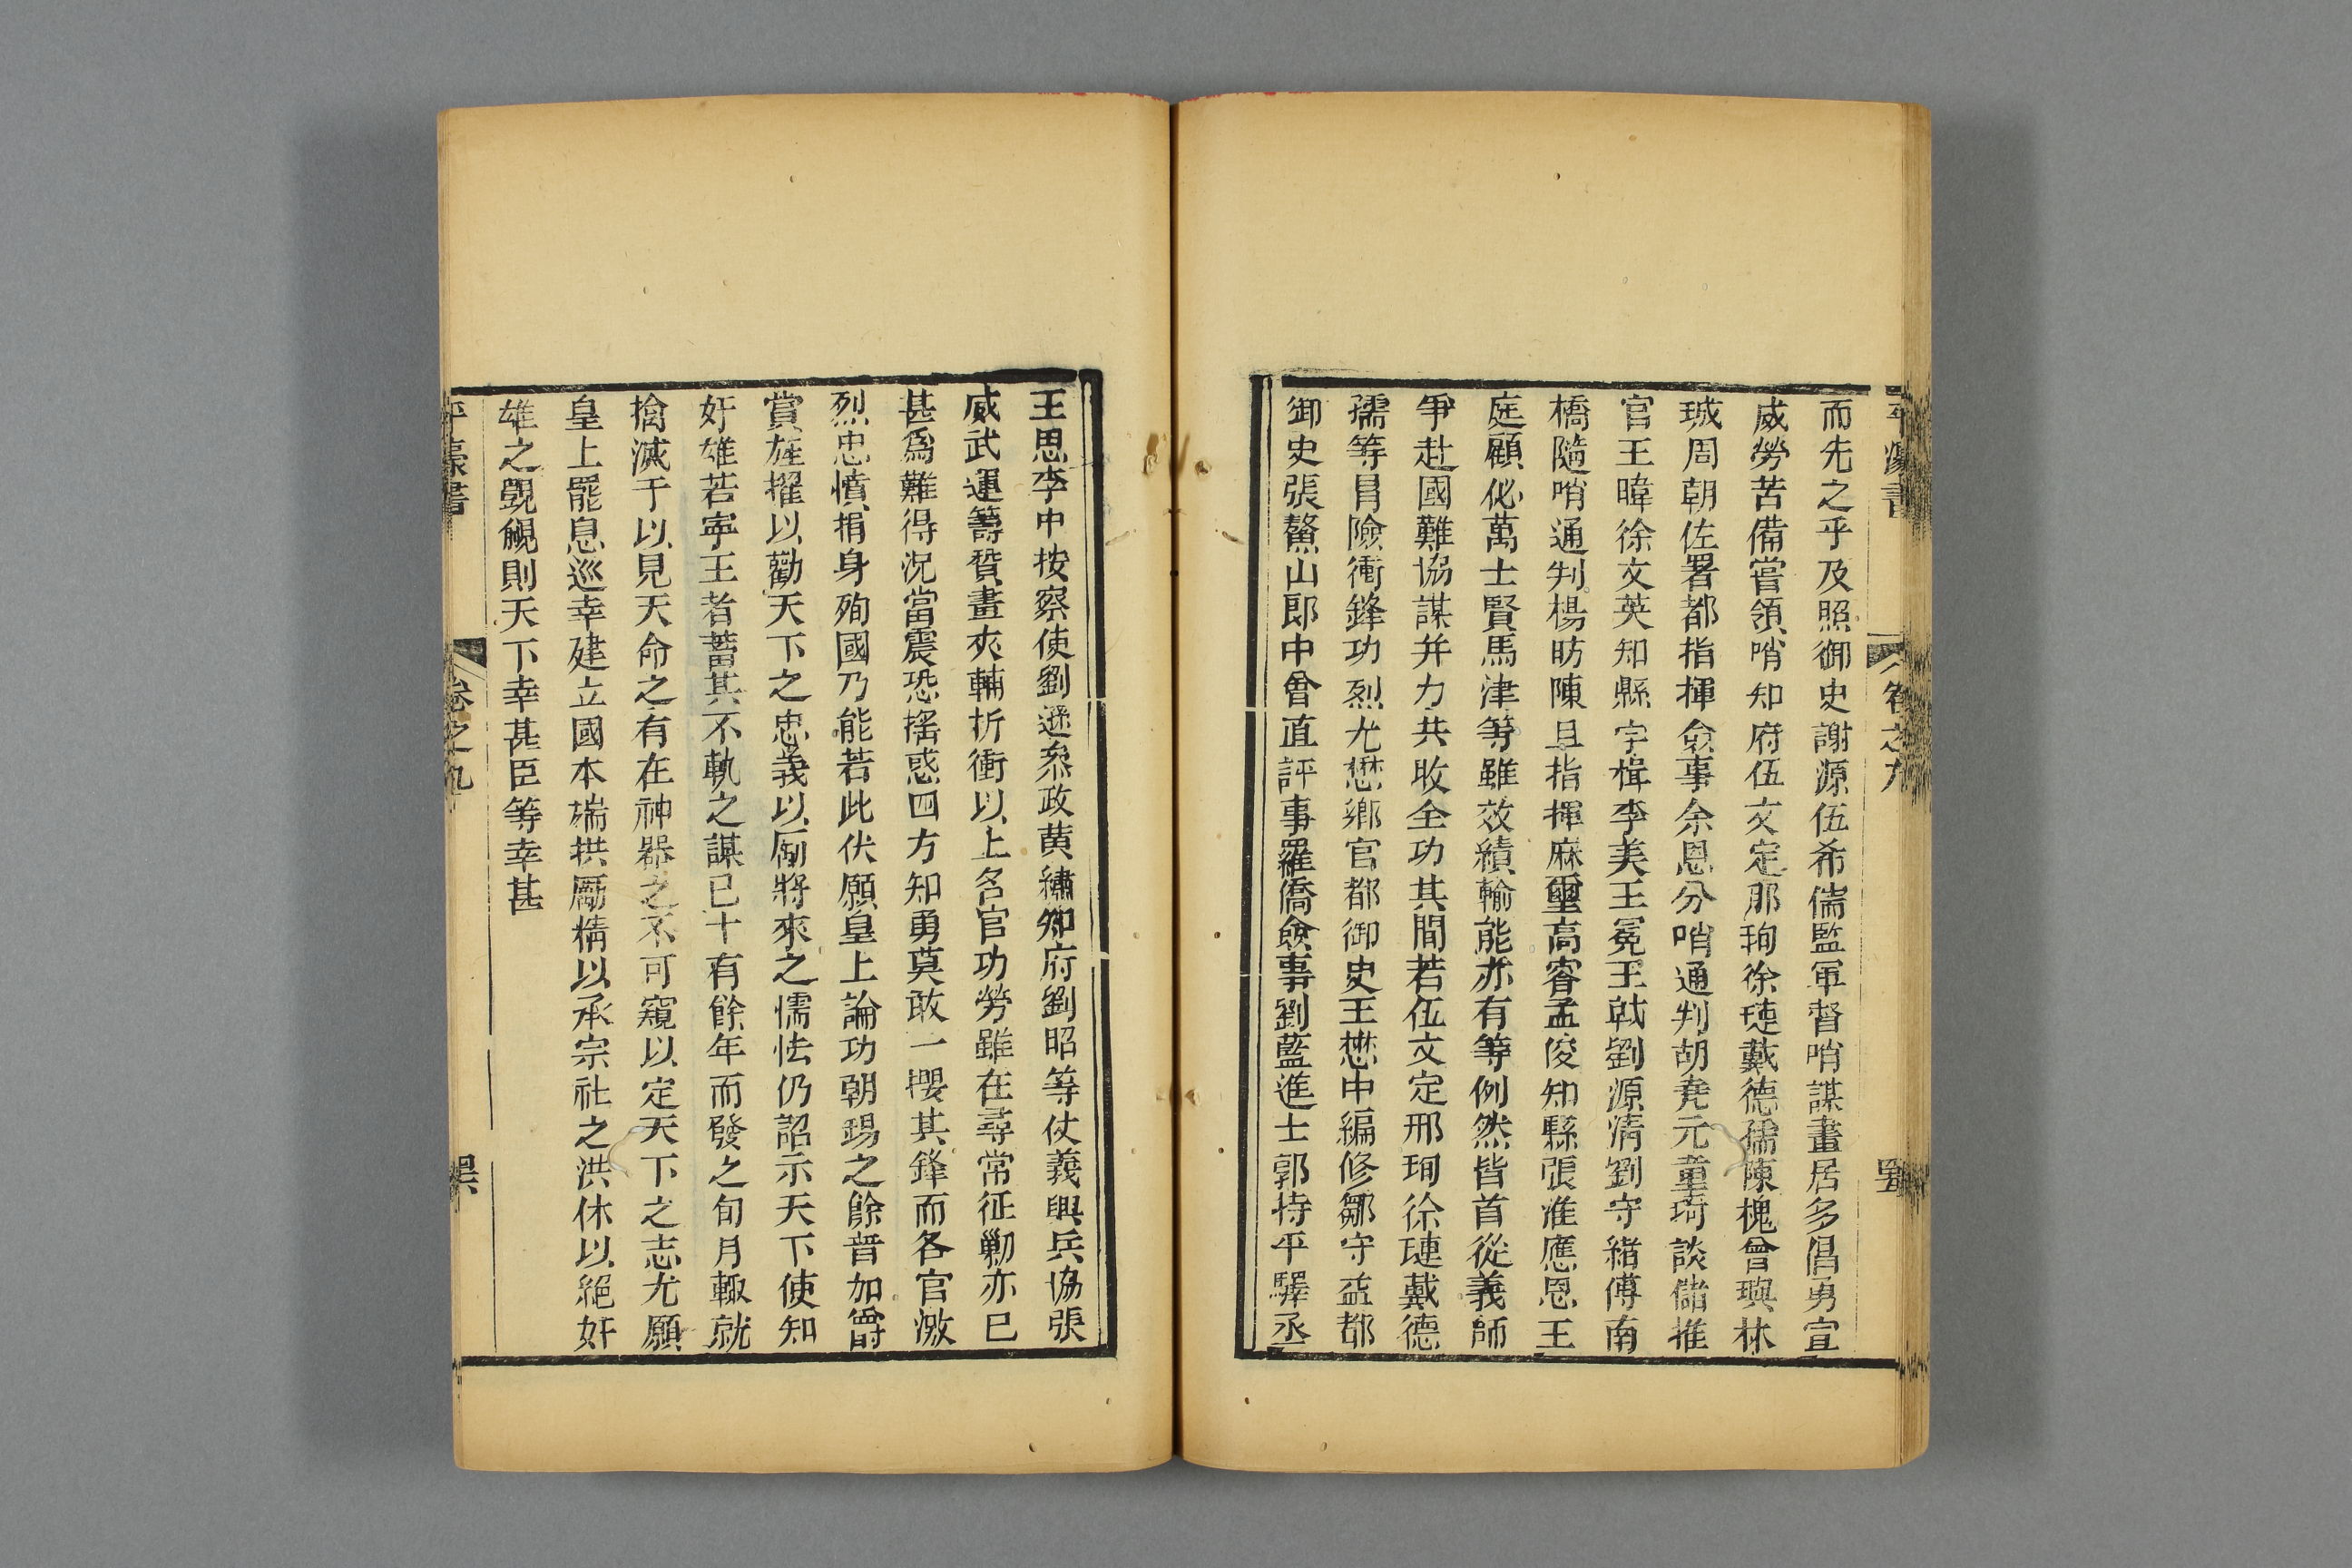 而先之乎及照御史謝源伍希儒監軍督哨謀畫居多倡勇宣
威勞苦備嘗領哨知府伍文定邢珣徐璉戴德孺陳槐曾璵林
珹周朝佐署都指揮僉事余恩分哨通判胡堯元童琦談儲推
官王暐徐文英知縣李楫李美王冕王軾劉源清劉守緒傅南
橋隨哨通判楊昉陳旦指揮麻璽高睿孟俊知縣張淮應恩王
庭顧佖萬士賢馬津等雖效績輸能亦有等例然皆首從義師
爭赴國難協謀并力共收全功其間若伍文定邢珣徐璉戴德
孺等冐險衝鋒功烈尤懋鄉官都御史王懋中編修鄒守益都
御史張鰲山郎中曾直評事羅僑僉事劉藍進士郭持平驛丞
王思李中按察使劉遜叅政黃繡知府劉昭等仗義興兵協張
威武運籌贊畫夾輔折衝以上各官功勞雖在尋常征勦亦已
甚爲難得況當震恐搖惑四方知勇莫敢一攖其鋒而各官激
烈忠憤捐身殉國乃能若此伏願皇上論功朝錫之餘普加爵
賞旌擢以勸天下之忠義以勵將來之懦怯仍詔示天下使知
奸雄若寧王者蓄其不軌之謀已十有餘年而發之旬月輒就
擒滅于以見天命之有在神器之不可窺以定天下之志尤願
皇上罷息巡幸建立國本端拱勵精以承宗社之洪休以絕奸
雄之覬覦則天下幸甚臣等幸甚
平濠書
卷之九